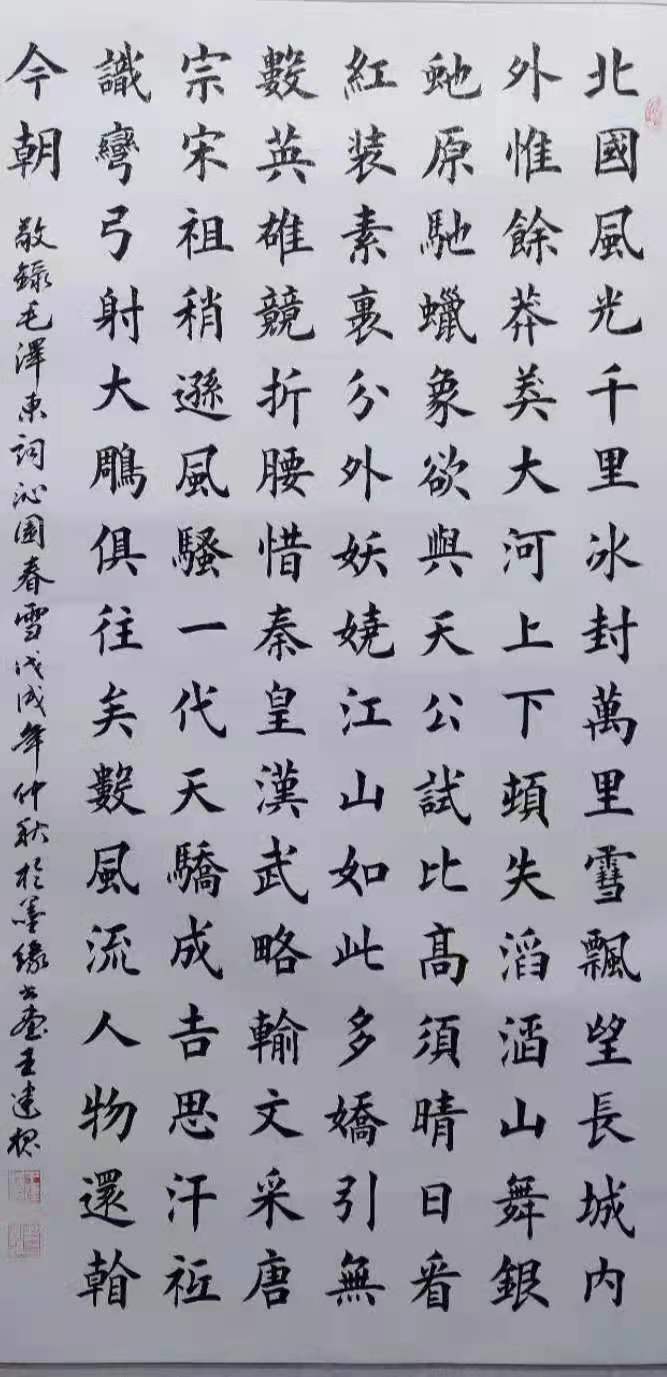 北國風光千里冰封萬里雪飄望長城内
外惟餘莽莽大河上下頓失滔滔山舞銀
虵原馳蠟象欲與天公試比髙須晴日看
紅装素裹分外妖嬈江山如此多嬌引無
數英雄競折腰惜秦皇漢武略輸文采唐
宗宋祖稍遜風騷一代天驕成吉思汗祗
識彎弓射大鵰俱往矣數風流人物還看
今朝
敬錄毛澤東詞沁園春雪戊戌年仲秋於墨緣书画王建